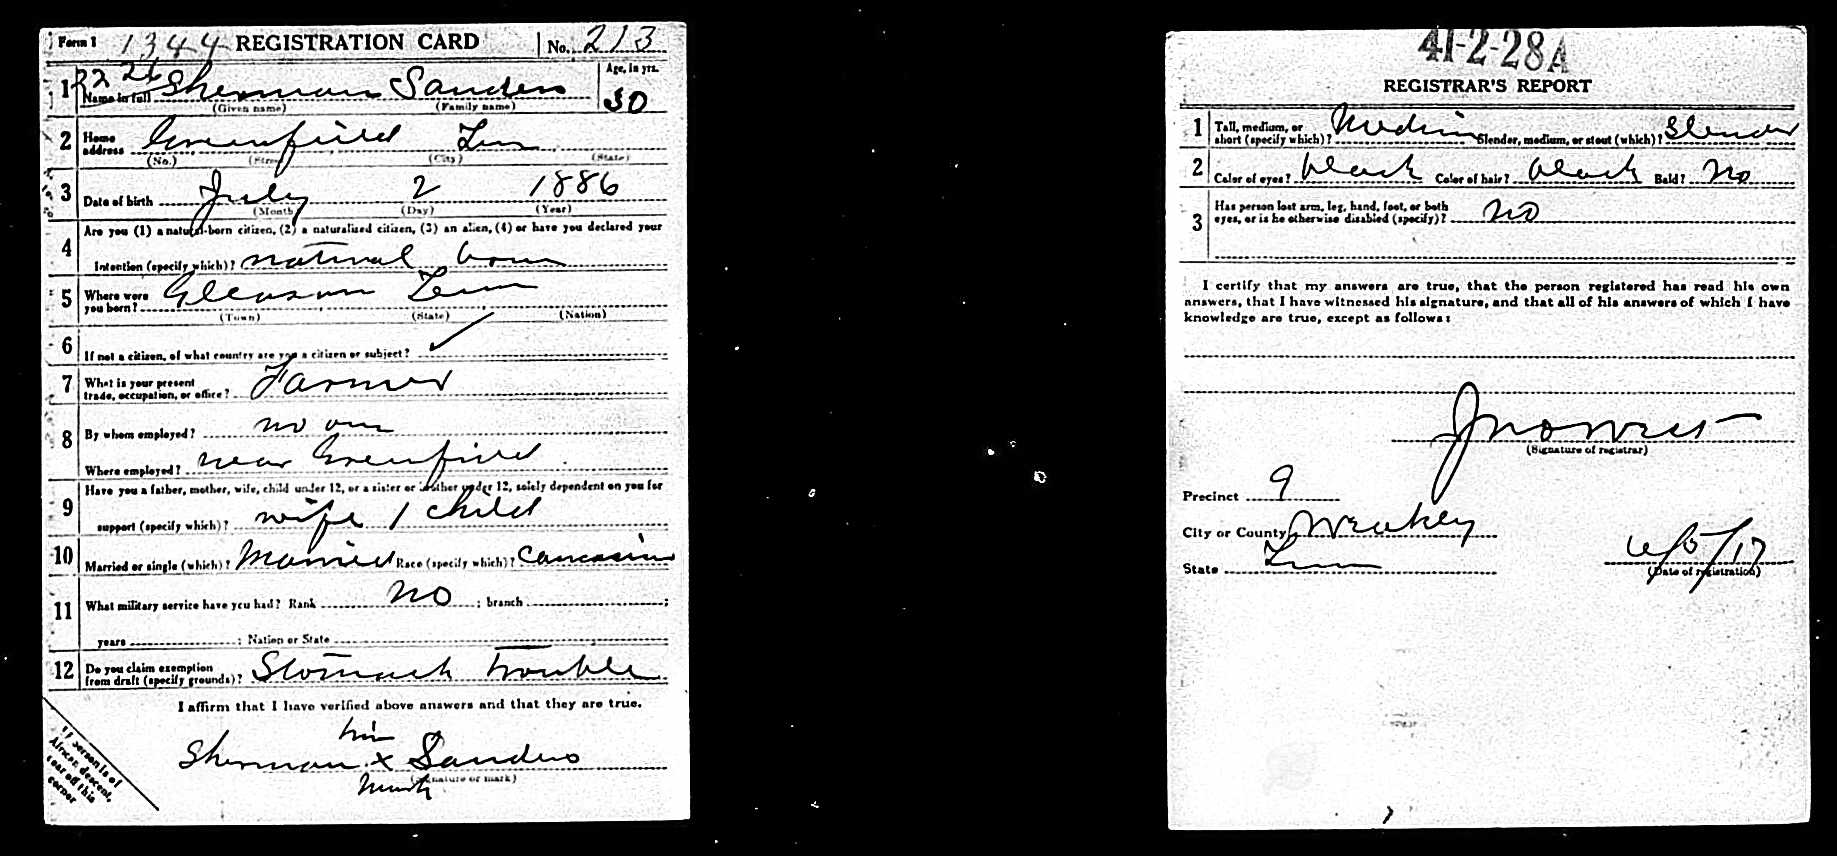 Form 1 1344 REGISTRATION CARD No. 213
1 22 26 Name in full Sherman Sanders Age, in yrs.
(Given name) (Family name) 30
2 Home address Greenfield Tenn
(No.) (Street) (City) (State)
3 Date of birth July 2 1886
(Month) (Day) (Year)
4 Are you (1) a natural-born citizen, (2) a naturalized citizen, (3) an alien, (4) or have you declared your
intention (specify which)? natural born
5 Where were you born? Gleason Tenn
(Town) (State) (Nation)
6 If not a citizen, of what country are you a citizen or subject? ✓
7 What is your present trade, occupation, or office? Farmer
8 By whom employed? no one
Where employed? near Greenfield
9 Have you a father, mother, wife, child under 12, or a sister or brother under 12, solely dependent on you for
support (specify which)? wife 1 child
10 Married or single (which)? Married Race (specify which)? Caucasian
11 What military service have you had? Rank No ; branch ;
years ; Nation or State
12 Do you claim exemption from draft (specify grounds)? Stomach trouble
I affirm that I have verified above answers and that they are true.
his
Sherman x Sanders
(Signature or mark)
mark
If person is of
African descent,
tear off this
corner
41-2-28A
REGISTRAR'S REPORT
1 Tall, medium, or short (specify which)? Medium Slender, medium, or stout (which)? Slender
2 Color of eyes? black Color of hair? black Bald? No
3 Has person lost arm, leg, hand, foot, or both
eyes, or is he otherwise disabled (specify)? No
I certify that my answers are true, that the person registered has read his own
answers, that I have witnessed his signature, and that all of his answers of which I have
knowledge are true, except as follows:
Jno West
(Signature of registrar)
Precinct 9
City or County Weakley
State Tenn 6/5/17
(Date of registration)